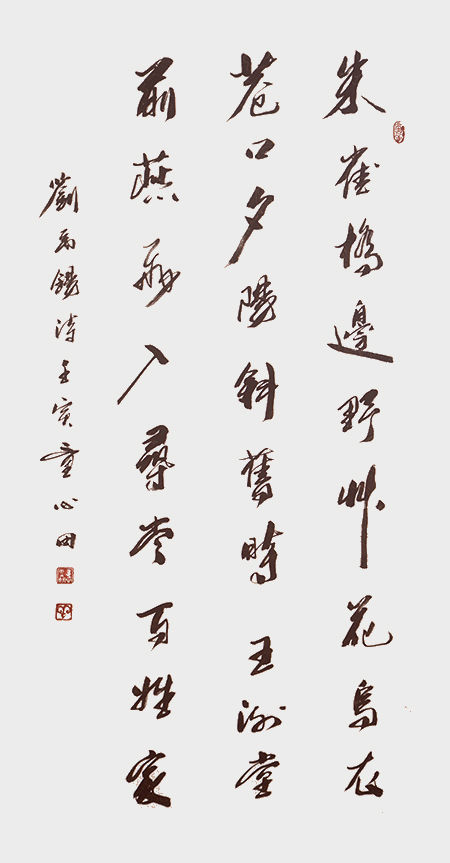 朱雀橋邊野艸花烏衣
巷口夕陽斜舊時王謝堂
前燕飛入尋常百姓家
劉禹錫詩壬寅童心田